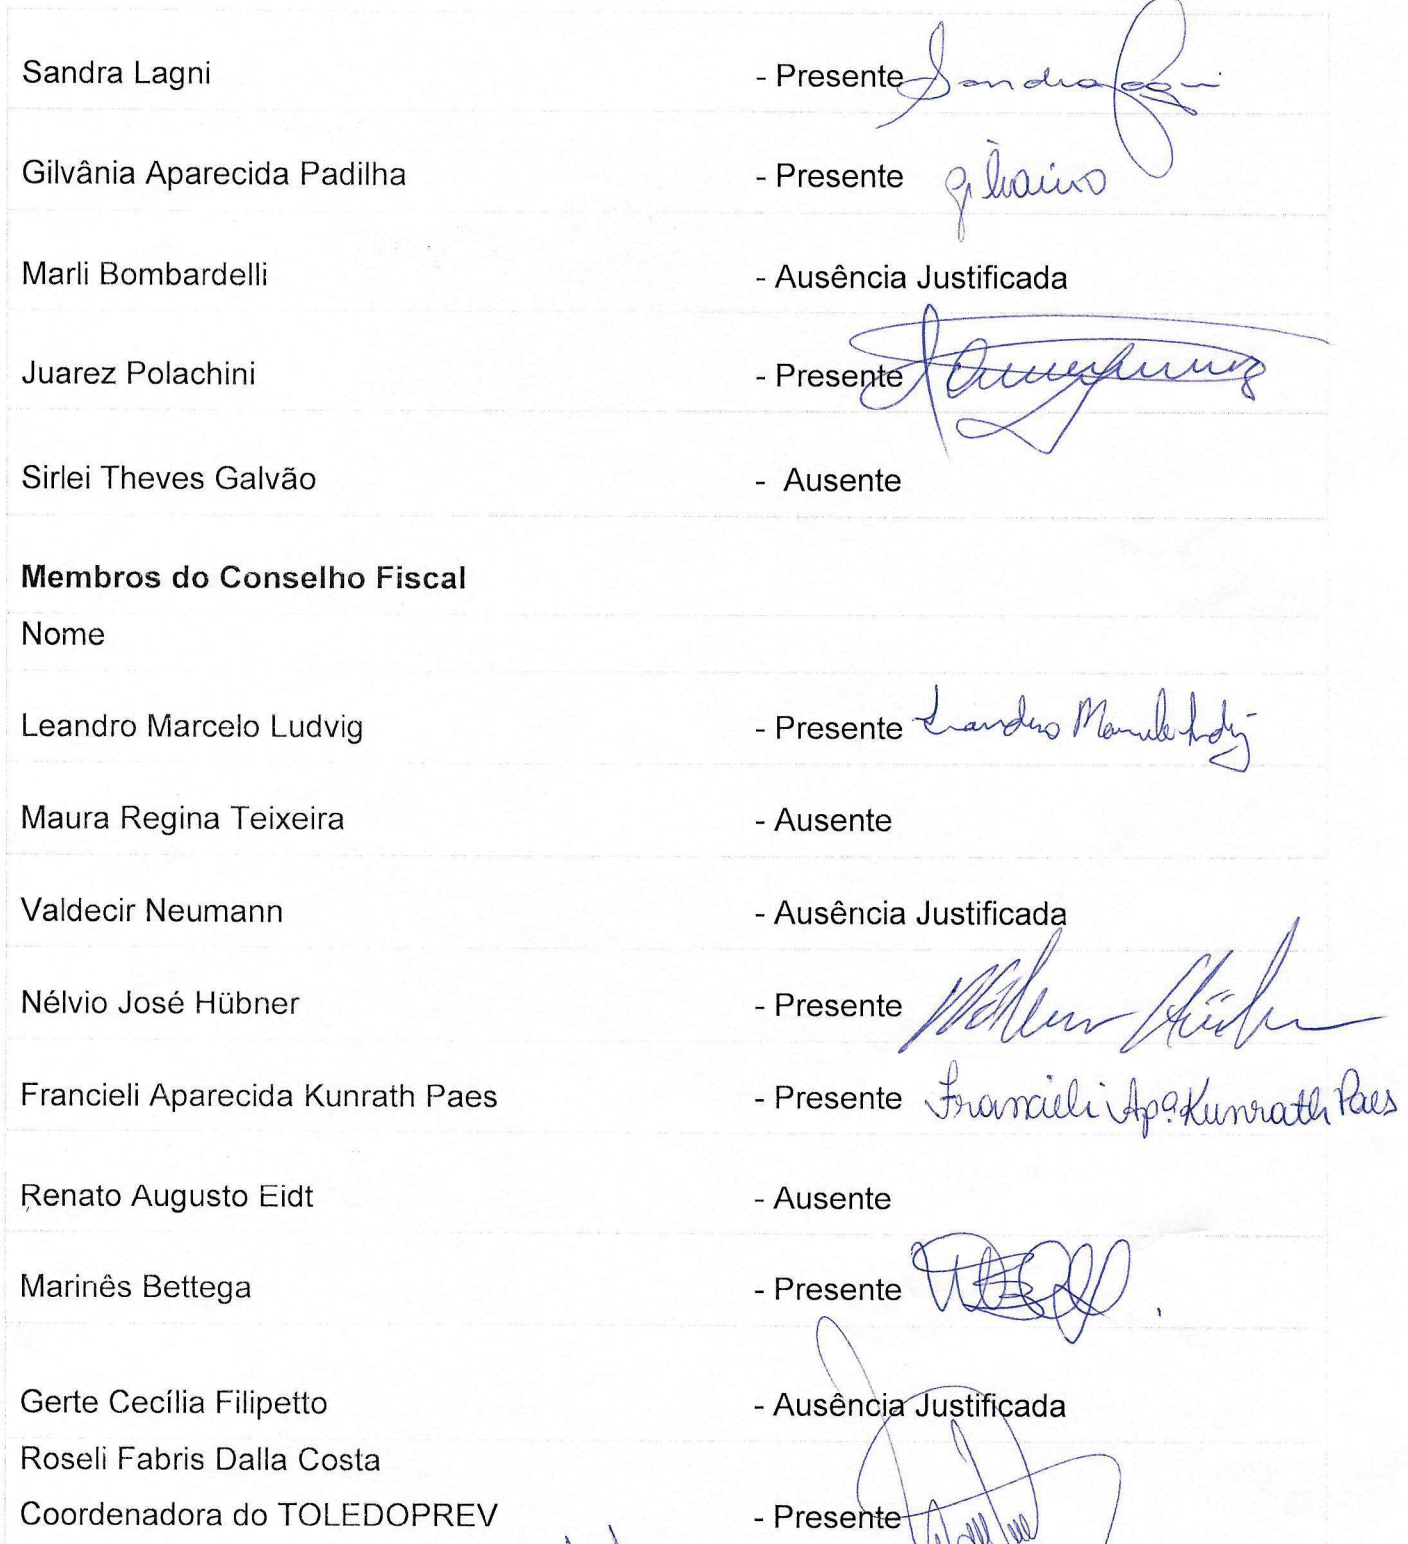 Sandra Lagni - Presente Sandra Lagni
Gilvânia Aparecida Padilha - Presente
Marli Bombardelli - Ausência Justificada
Juarez Polachini - Presente
Sirlei Theves Galvão - Ausente
Membros do Conselho Fiscal
Nome
Leandro Marcelo Ludvig - Presente Leandro Marcelo Ludvig
Maura Regina Teixeira - Ausente
Valdecir Neumann - Ausência Justificada
Nélvio José Hübner - Presente
Francieli Aparecida Kunrath Paes - Presente Francieli Apª Kunrath Paes
Renato Augusto Eidt - Ausente
Marinês Bettega - Presente
Gerte Cecília Filipetto - Ausência Justificada
Roseli Fabris Dalla Costa
Coordenadora do TOLEDOPREV - Presente